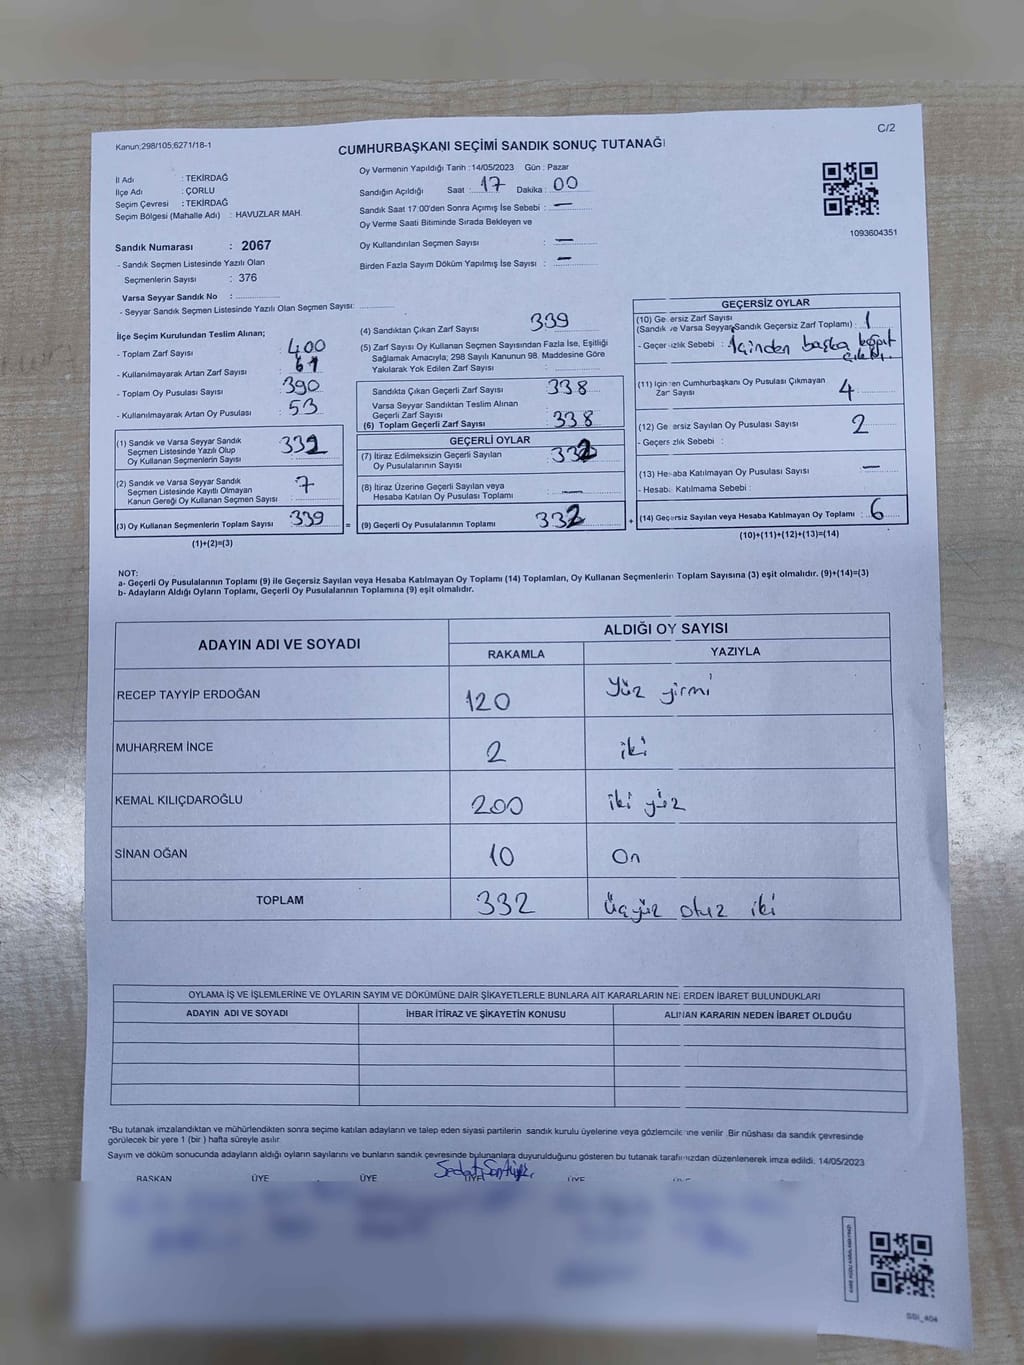 Kanun:298/105;6271/18-1
C/2
CUMHURBAŞKANI SEÇİMİ SANDIK SONUÇ TUTANAĞI
İl Adı : TEKİRDAĞ
İlçe Adı : ÇORLU
Seçim Çevresi : TEKİRDAĞ
Seçim Bölgesi (Mahalle Adı) : HAVUZLAR MAH.
Sandık Numarası : 2067
- Sandık Seçmen Listesinde Yazılı Olan
Seçmenlerin Sayısı : 376
Varsa Seyyar Sandık No :
- Seyyar Sandık Seçmen Listesinde Yazılı Olan Seçmen Sayısı:
Oy Vermenin Yapıldığı Tarih :14/05/2023 Gün : Pazar
Sandığın Açıldığı Saat : 17 Dakika : 00
Sandık Saat 17:00'den Sonra Açımış İse Sebebi : —
Oy Verme Saati Bitiminde Sırada Bekleyen ve
Oy Kullandırılan Seçmen Sayısı : —
Birden Fazla Sayım Döküm Yapılmış İse Sayısı : —
1093604351
İlçe Seçim Kurulundan Teslim Alınan;
- Toplam Zarf Sayısı : 400
- Kullanılmayarak Artan Zarf Sayısı : 61
- Toplam Oy Pusulası Sayısı : 390
- Kullanılmayarak Artan Oy Pusulası : 53
(1) Sandık ve Varsa Seyyar Sandık
Seçmen Listesinde Yazılı Olup
Oy Kullanan Seçmenlerin Sayısı : 332
(2) Sandık ve Varsa Seyyar Sandık
Seçmen Listesinde Kayıtlı Olmayan
Kanun Gereği Oy Kullanan Seçmen Sayısı : 7
(3) Oy Kullanan Seçmenlerin Toplam Sayısı : 339 =
(1)+(2)=(3)
(4) Sandıktan Çıkan Zarf Sayısı : 339
(5) Zarf Sayısı Oy Kullanan Seçmen Sayısından Fazla İse, Eşitliği
Sağlamak Amacıyla; 298 Sayılı Kanunun 98. Maddesine Göre
Yakılarak Yok Edilen Zarf Sayısı :
Sandıkta Çıkan Geçerli Zarf Sayısı : 338
Varsa Seyyar Sandıktan Teslim Alınan
Geçerli Zarf Sayısı :
(6) Toplam Geçerli Zarf Sayısı : 338
GEÇERLİ OYLAR
(7) İtiraz Edilmeksizin Geçerli Sayılan
Oy Pusulalarının Sayısı : 332
(8) İtiraz Üzerine Geçerli Sayılan veya
Hesaba Katılan Oy Pusulası Toplamı : —
(9) Geçerli Oy Pusulalarının Toplamı : 332 +
GEÇERSİZ OYLAR
(10) Geçersiz Zarf Sayısı
(Sandık ve Varsa Seyyar Sandık Geçersiz Zarf Toplamı) : 1
- Geçersizlik Sebebi : İçinden başka kağıt
çıktı.
(11) İçinden Cumhurbaşkanı Oy Pusulası Çıkmayan
Zarf Sayısı : 4
(12) Geçersiz Sayılan Oy Pusulası Sayısı : 2
- Geçersizlik Sebebi :
(13) Hesaba Katılmayan Oy Pusulası Sayısı : —
- Hesaba Katılmama Sebebi :
(14) Geçersiz Sayılan veya Hesaba Katılmayan Oy Toplamı : 6
(10)+(11)+(12)+(13)=(14)
NOT:
a- Geçerli Oy Pusulalarının Toplamı (9) ile Geçersiz Sayılan veya Hesaba Katılmayan Oy Toplamı (14) Toplamları, Oy Kullanan Seçmenlerin Toplam Sayısına (3) eşit olmalıdır. (9)+(14)=(3)
b- Adayların Aldığı Oyların Toplamı, Geçerli Oy Pusulalarının Toplamına (9) eşit olmalıdır.
ADAYIN ADI VE SOYADI
ALDIĞI OY SAYISI
RAKAMLA YAZIYLA
RECEP TAYYİP ERDOĞAN 120 Yüz yirmi
MUHARREM İNCE 2 iki
KEMAL KILIÇDAROĞLU 200 iki yüz
SİNAN OĞAN 10 On
TOPLAM 332 üçyüz otuz iki
OYLAMA İŞ VE İŞLEMLERİNE VE OYLARIN SAYIM VE DÖKÜMÜNE DAİR ŞİKAYETLERLE BUNLARA AİT KARARLARIN NELERDEN İBARET BULUNDUKLARI
ADAYIN ADI VE SOYADI İHBAR İTİRAZ VE ŞİKAYETİN KONUSU ALINAN KARARIN NEDEN İBARET OLDUĞU
*Bu tutanak imzalandıktan ve mühürlendikten sonra seçime katılan adayların ve talep eden siyasi partilerin sandık kurulu üyelerine veya gözlemcilerine verilir. Bir nüshası da sandık çevresinde
görülecek bir yere 1 (bir ) hafta süreyle asılır.
Sayım ve döküm sonucunda adayların aldığı oyların sayılarını ve bunların sandık çevresinde bulunanlara duyurulduğunu gösteren bu tutanak tarafımızdan düzenlenerek imza edildi. 14/05/2023
BAŞKAN ÜYE ÜYE ÜYE ÜYE
SSI_404